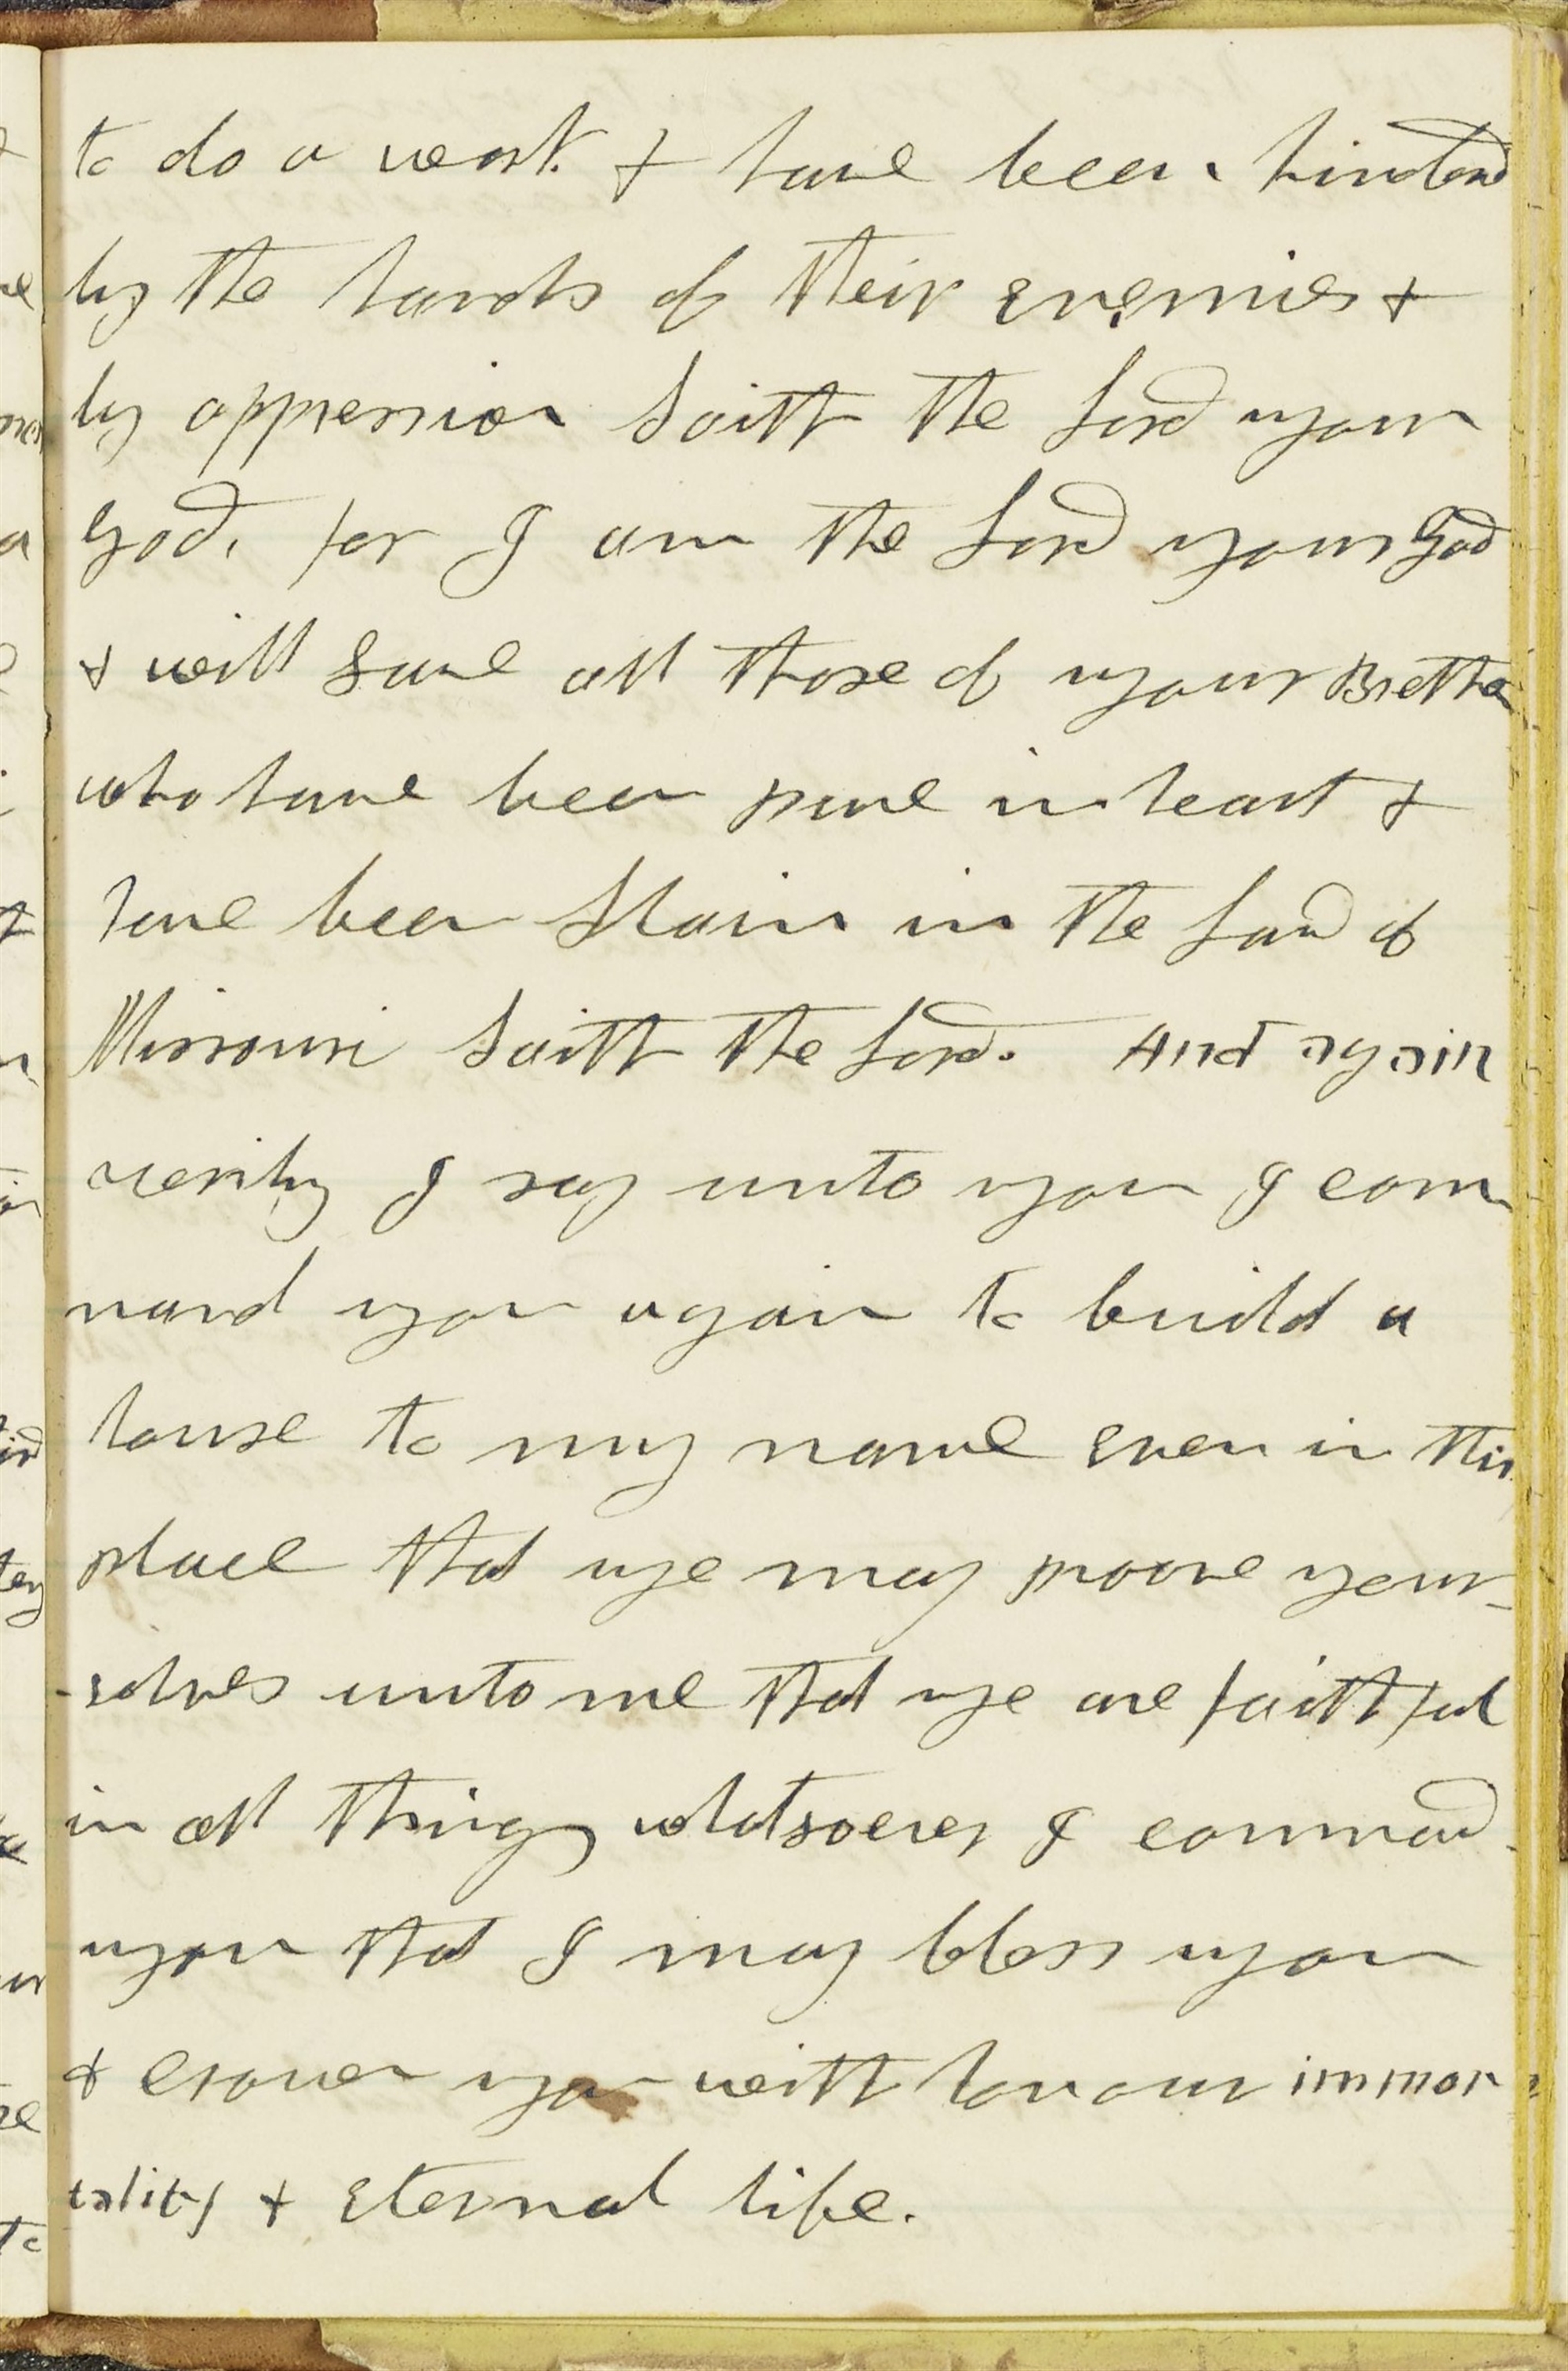 to do a work & have been hinderd
by the hands of their enemies &
by oppression Saith the Lord your
God, for I am the Lord your God
& will Save all those of your Brethren
who have been pure in heart &
have been Slain in the Land of
Missouri Saith the Lord. And again
verily I say unto you I com
mand you again to build a
house to my name even in this
place that ye may proove your-
-selves unto me that ye are faithful
in all things whatsoever I command
you that I may bless you
& crown you with honour immor
tality & Eternal life.